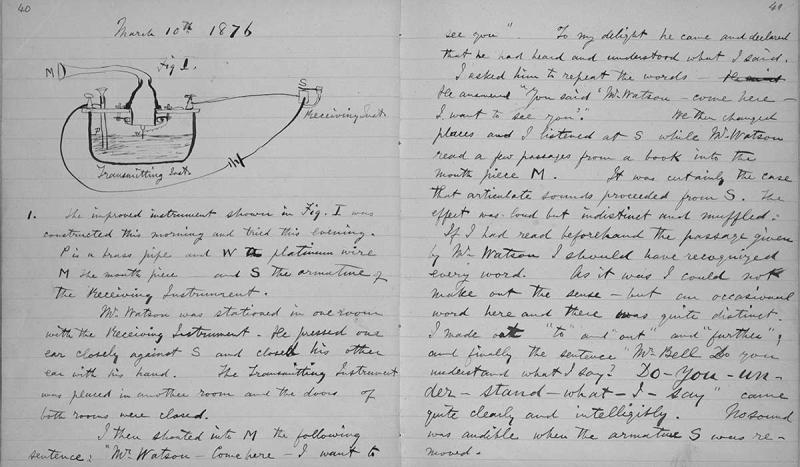 40
March 10th 1876
M
Fig 1.
S
Receiving Inst.
P
W
Transmitting Inst.
1. The improved instrument shown in Fig. I was
constructed this morning and tried this evening.
P is a brass pipe and W the platinum wire
M the mouth piece and S the armature of
the Receiving Instrument.
Mr. Watson was stationed in one room
with the Receiving Instrument. He pressed one
ear closely against S and closed his other
ear with his hand. The Transmitting Instrument
was placed in another room and the doors of
both rooms were closed.
I then shouted into M the following
sentence: "Mr. Watson – Come here – I want to
41
see you". To my delight he came and declared
that he had heard and understood what I said.
I asked him to repeat the words –
He answered "You said 'Mr. Watson – come here –
I want to see you'." We then changed
places and I listened at S while Mr. Watson
read a few passages from a book into the
mouth piece M. It was certainly the case
that articulate sounds proceeded from S. The
effect was loud but indistinct and muffled.
If I had read beforehand the passage given
by Mr. Watson I should have recognized
every word. As it was I could not
make out the sense – but an occasional
word here and there was quite distinct.
I made out "to" and "out" and "further";
and finally the sentence "Mr. Bell Do you
understand what I say? Do–you–un–
der–stand–what–I–say" came
quite clearly and intelligibly. No sound
was audible when the armature S was re–
moved.